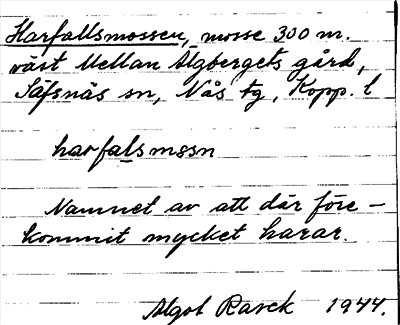 Harfallsmossen, mosse 300 m.
väst Mellan Älgbergets gård,
Säfsnäs sn, Nås tg, Kopp. l
harfalsmssn
Namnet av att där före-
kommit mycket harar.
Algot Rasck 1944.